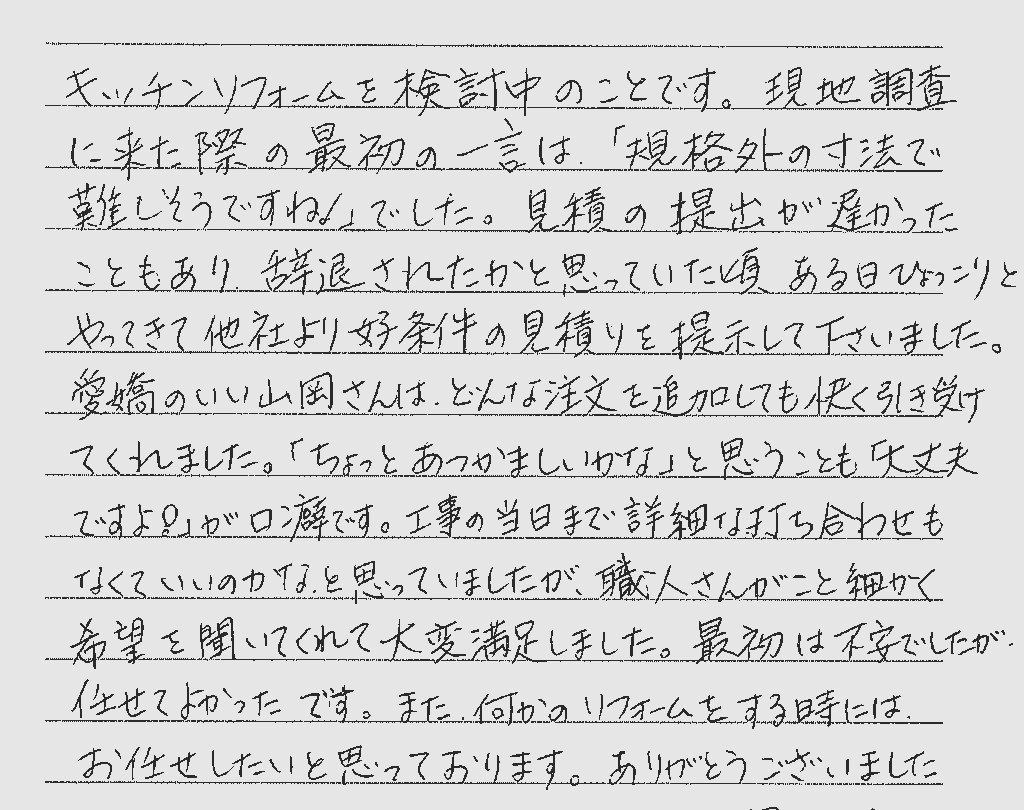 キッチンリフォームを検討中のことです。現地調査
に来た際の最初の一言は、「規格外の寸法で
難しそうですね!」でした。見積の提出が遅かった
こともあり、辞退されたかと思っていた頃 ある日ひょっこりと
やってきて他社より好条件の見積りを提示して下さいました。
愛嬌のいい山岡さんは、どんな注文を追加しても快く引き受け
てくれました。「ちょっとあつかましいかな」と思うことも「大丈夫
ですよ!」が口癖です。工事の当日まで詳細な打ち合わせも
なくていいのかな、と思っていましたが、職人さんがこと細かく
希望を聞いてくれて大変満足しました。最初は不安でしたが、
任せてよかったです。また、何かのリフォームをする時には、
お任せしたいと思っております。ありがとうございました